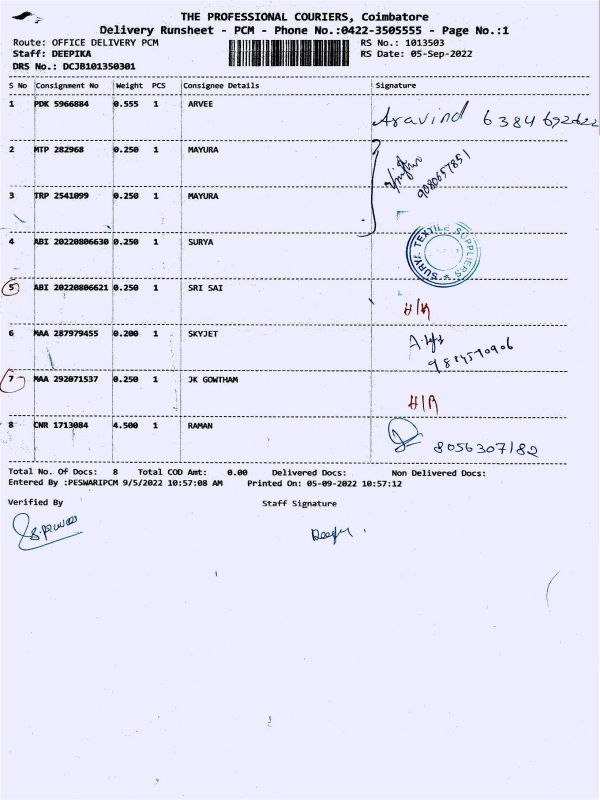 THE PROFESSIONAL COURIERS, Coimbatore
Delivery Runsheet - PCM - Phone No.:0422-3505555 - Page No.:1
Route: OFFICE DELIVERY PCM RS No.: 1013503
Staff: DEEPIKA RS Date: 05-Sep-2022
DRS No.: DCJB101350301
S No Consignment No Weight PCS Consignee Details Signature
1 PDK 5966884 0.555 1 ARVEE Aravind 6384692622
2 MTP 282968 0.250 1 MAYURA 9080657851
3 TRP 2541099 0.250 1 MAYURA
4 ABI 20220806630 0.250 1 SURYA SURYA TEXTILE SUPPLIERS
5 ABI 20220806621 0.250 1 SRI SAI H/R
6 MAA 287979455 0.200 1 SKYJET
7 MAA 292071537 0.250 1 JK GOWTHAM H/R
8 CNR 1713084 4.500 1 RAMAN 8056307182
Total No. Of Docs: 8 Total COD Amt: 0.00 Delivered Docs: Non Delivered Docs:
Entered By :PESWARIPCM 9/5/2022 10:57:08 AM Printed On: 05-09-2022 10:57:12
Verified By Staff Signature